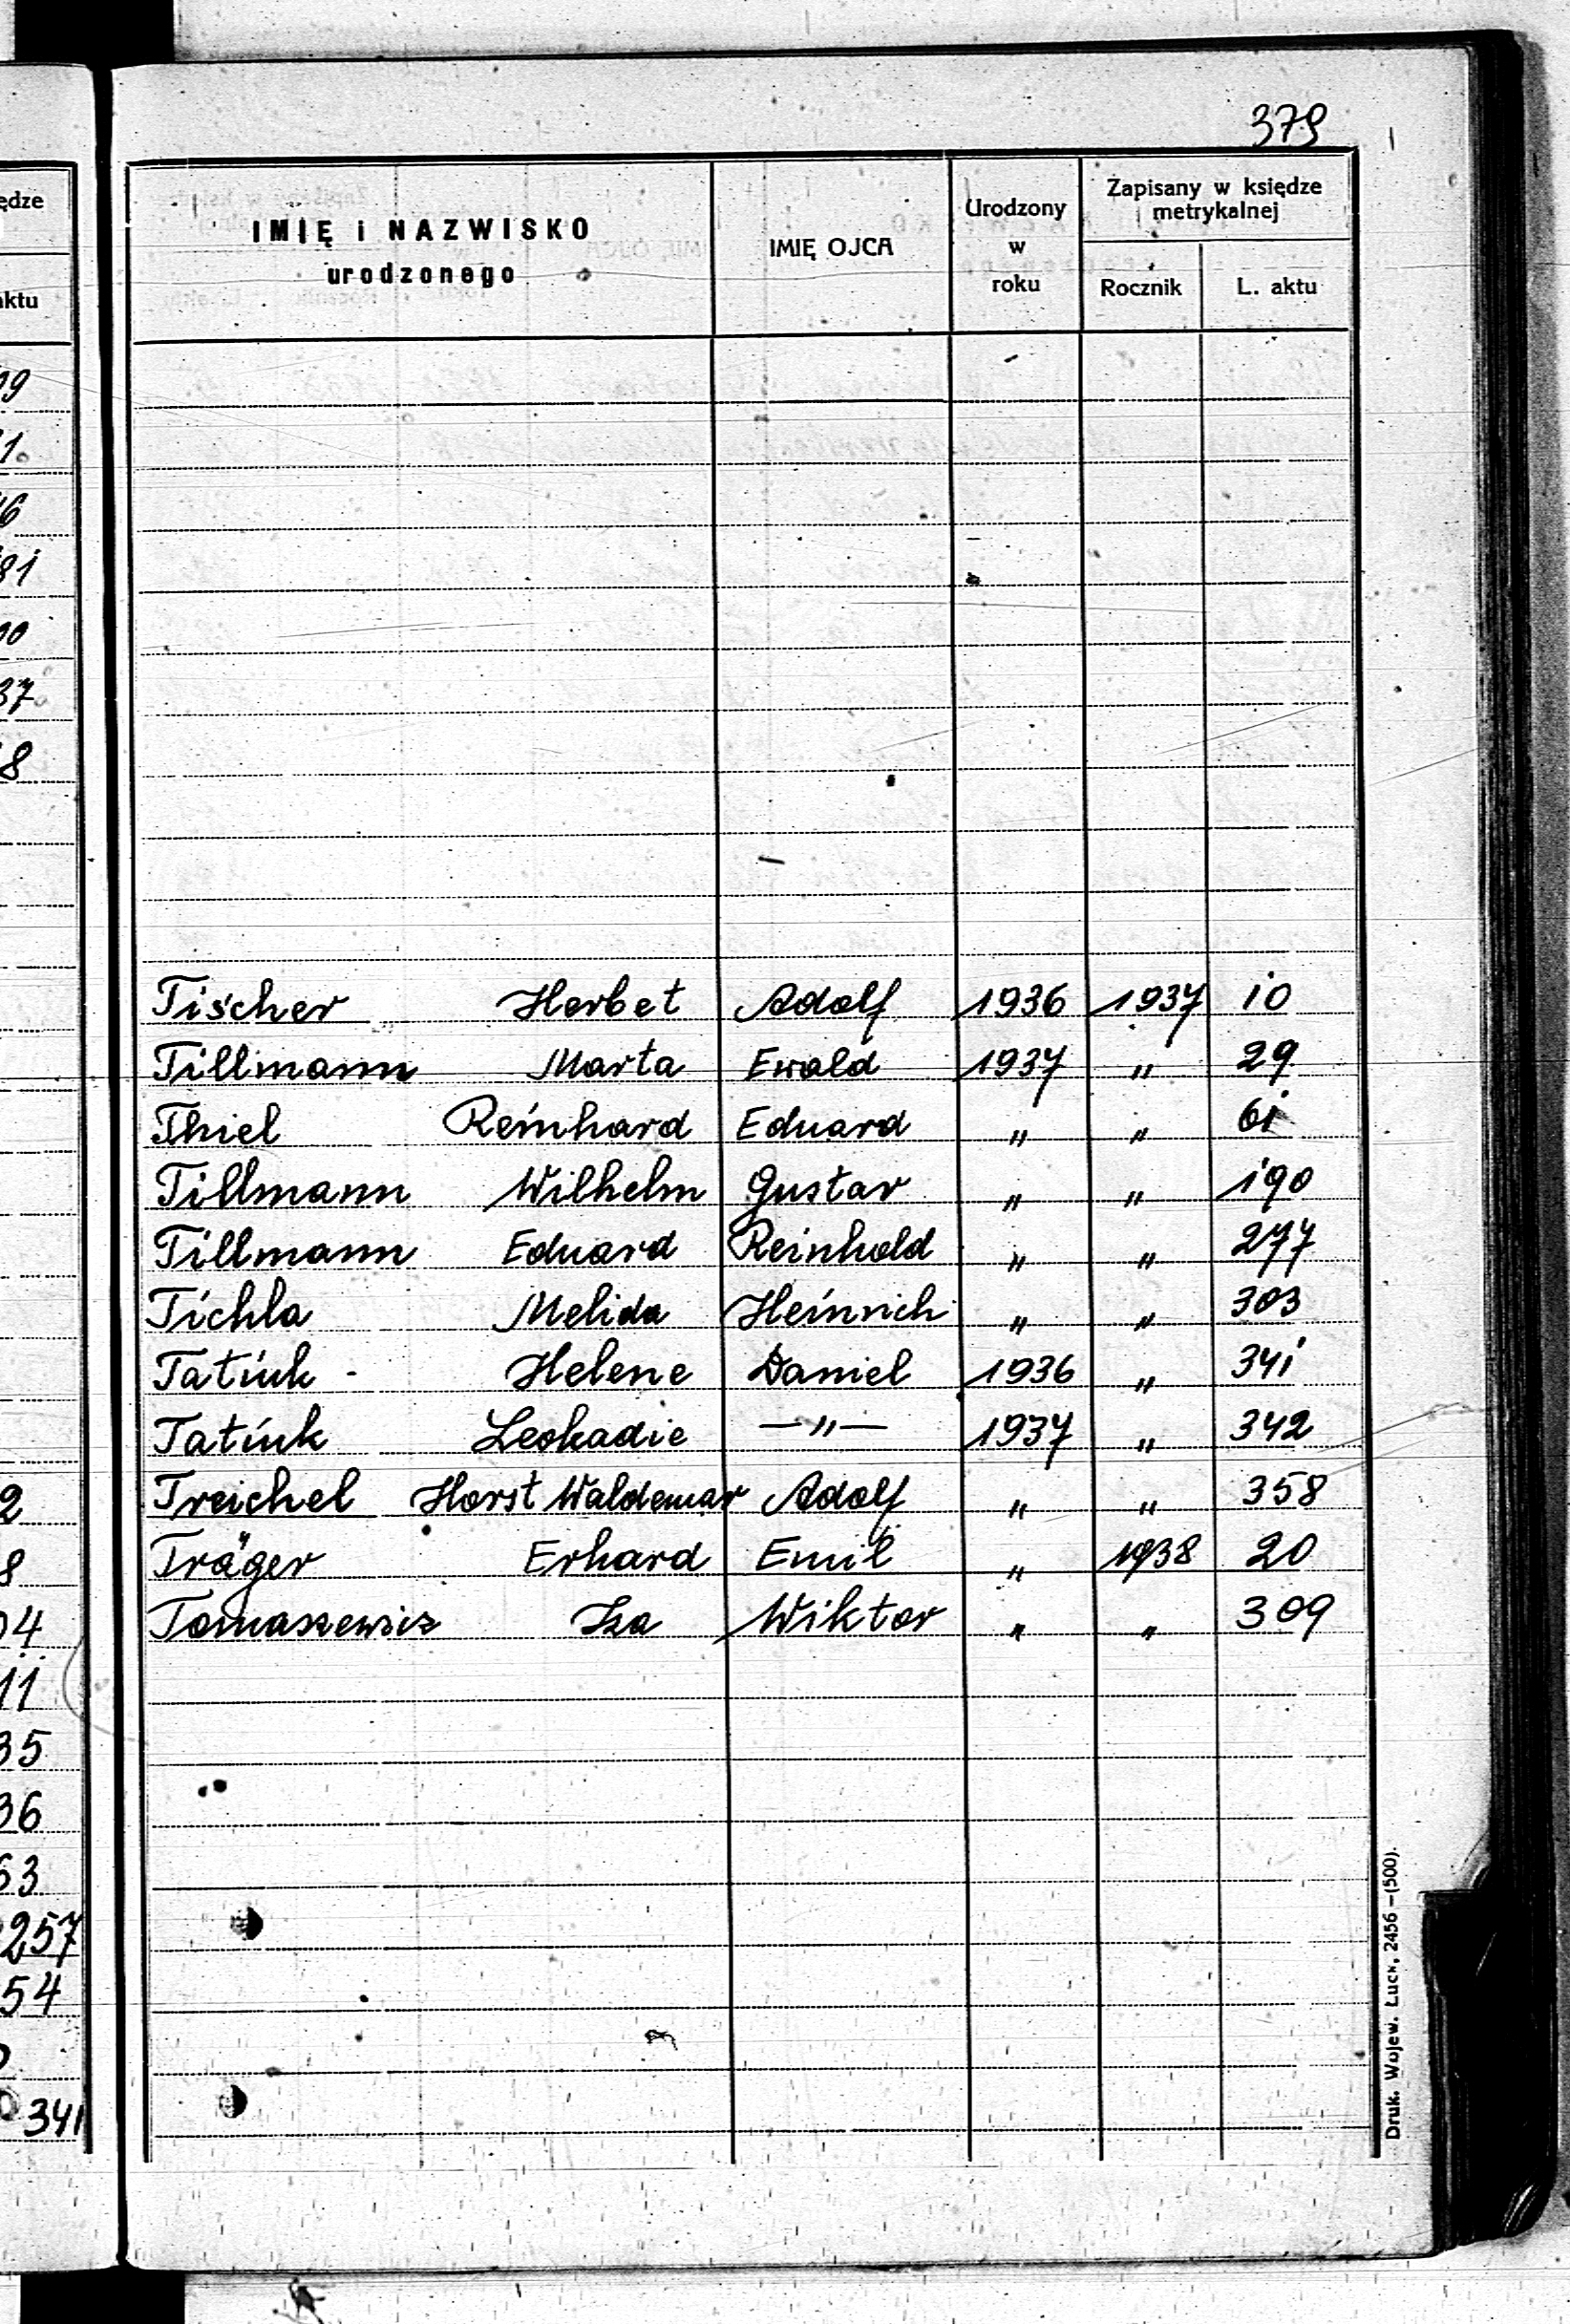 379
ędze
IMIĘ i NAZWISKO
urodzonego
IMIĘ OJCA
Urodzony
w
roku
Zapisany w księdze
metrykalnej
Rocznik
L. aktu
aktu
81
37
8
Tischer Herbet Adolf 1936 1937 10
Tillmann Marta Ewald 1937 " 29
Thiel Reinhard Eduard " " 61
Tillmann Wilhelm Gustav " " 190
Tillmann Eduard Reinhold " " 277
Tichla Melida Heinrich " " 303
Tatiuk - Helene Daniel 1936 " 341
Tatiuk Leokadie —"— 1937 " 342
Treichel Horst Waldemar Adolf " " 358
Träger Erhard Emil " 1938 20
Tomaszewicz Iza Wiktor " " 309
2
8
04
11
35
36
63
257
54
341
Druk. Wojew. Łuck, 2456 — (500).